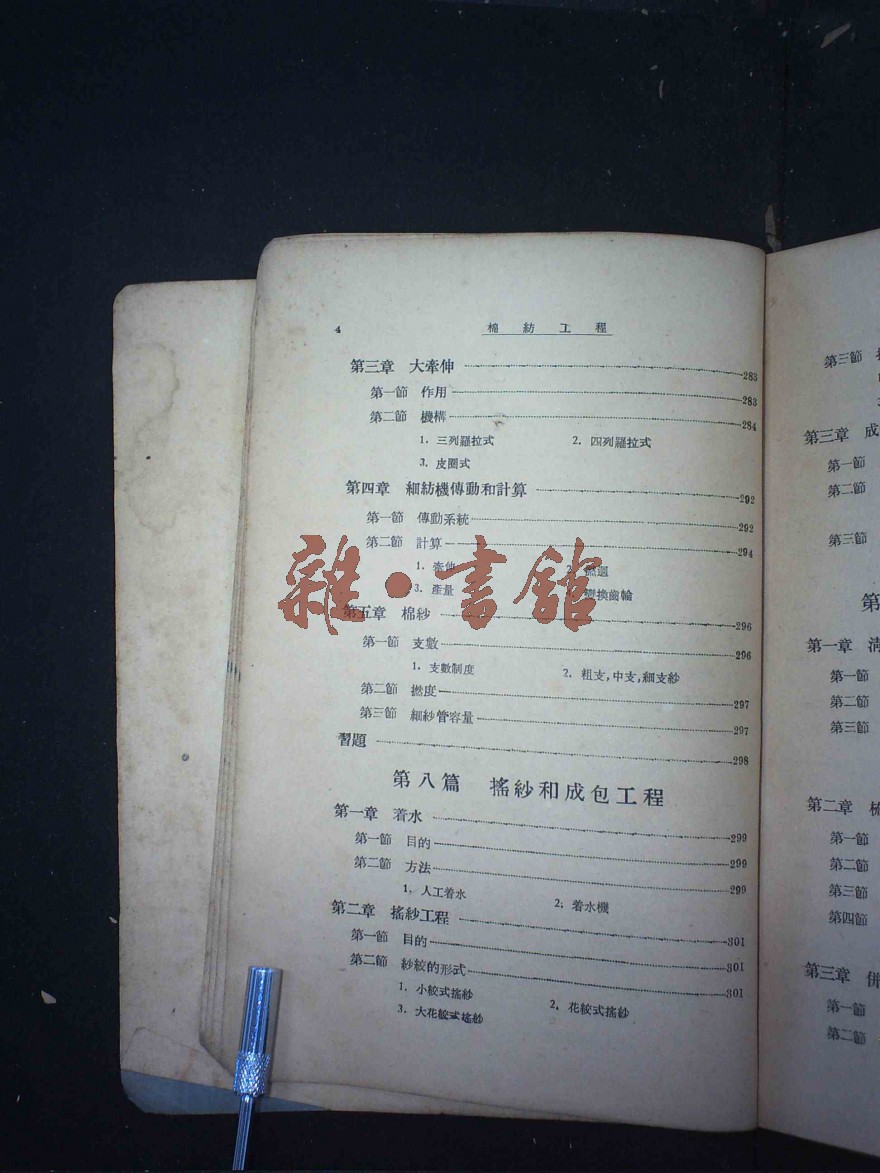 4 棉紡工程
第三章 大牽伸 283
第一節 作用 283
第二節 機構 284
1. 三列羅拉式 2. 四列羅拉式
3. 皮圈式
第四章 細紡機傳動和計算 292
第一節 傳動系統 292
第二節 計算 294
1. 牽伸
3. 產量 變換齒輪
雜·書館
第五章 棉紗 296
第一節 支數 296
1. 支數制度 2. 粗支,中支,細支紗
第二節 撚度 297
第三節 細紗管容量 297
習題 298
第八篇 搖紗和成包工程
第一章 着水 299
第一節 目的 299
第二節 方法 299
1. 人工着水 2. 着水機
第二章 搖紗工程 301
第一節 目的 301
第二節 紗絞的形式 301
1. 小絞式搖紗 2. 花絞式搖紗
3. 大花絞式搖紗
第三節
第三章 成
第一節
第二節
第三節
第
第一章 清
第一節
第二節
第三節
第二章 梳
第一節
第二節
第三節
第四節
第三章 併
第一節
第二節